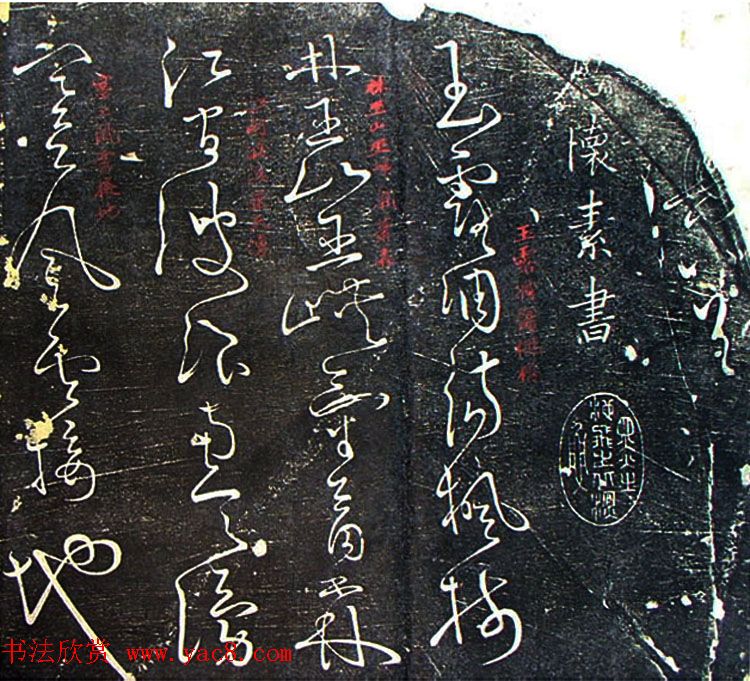 懷素書
玉露凋傷楓樹
玉露凋傷楓樹
林巫山巫峽氣蕭森
林巫山巫峽氣蕭森
江間波浪兼天湧
江間波浪兼天湧
塞上風雲接地
塞上風雲接地
书法欣赏 www.yac8.com